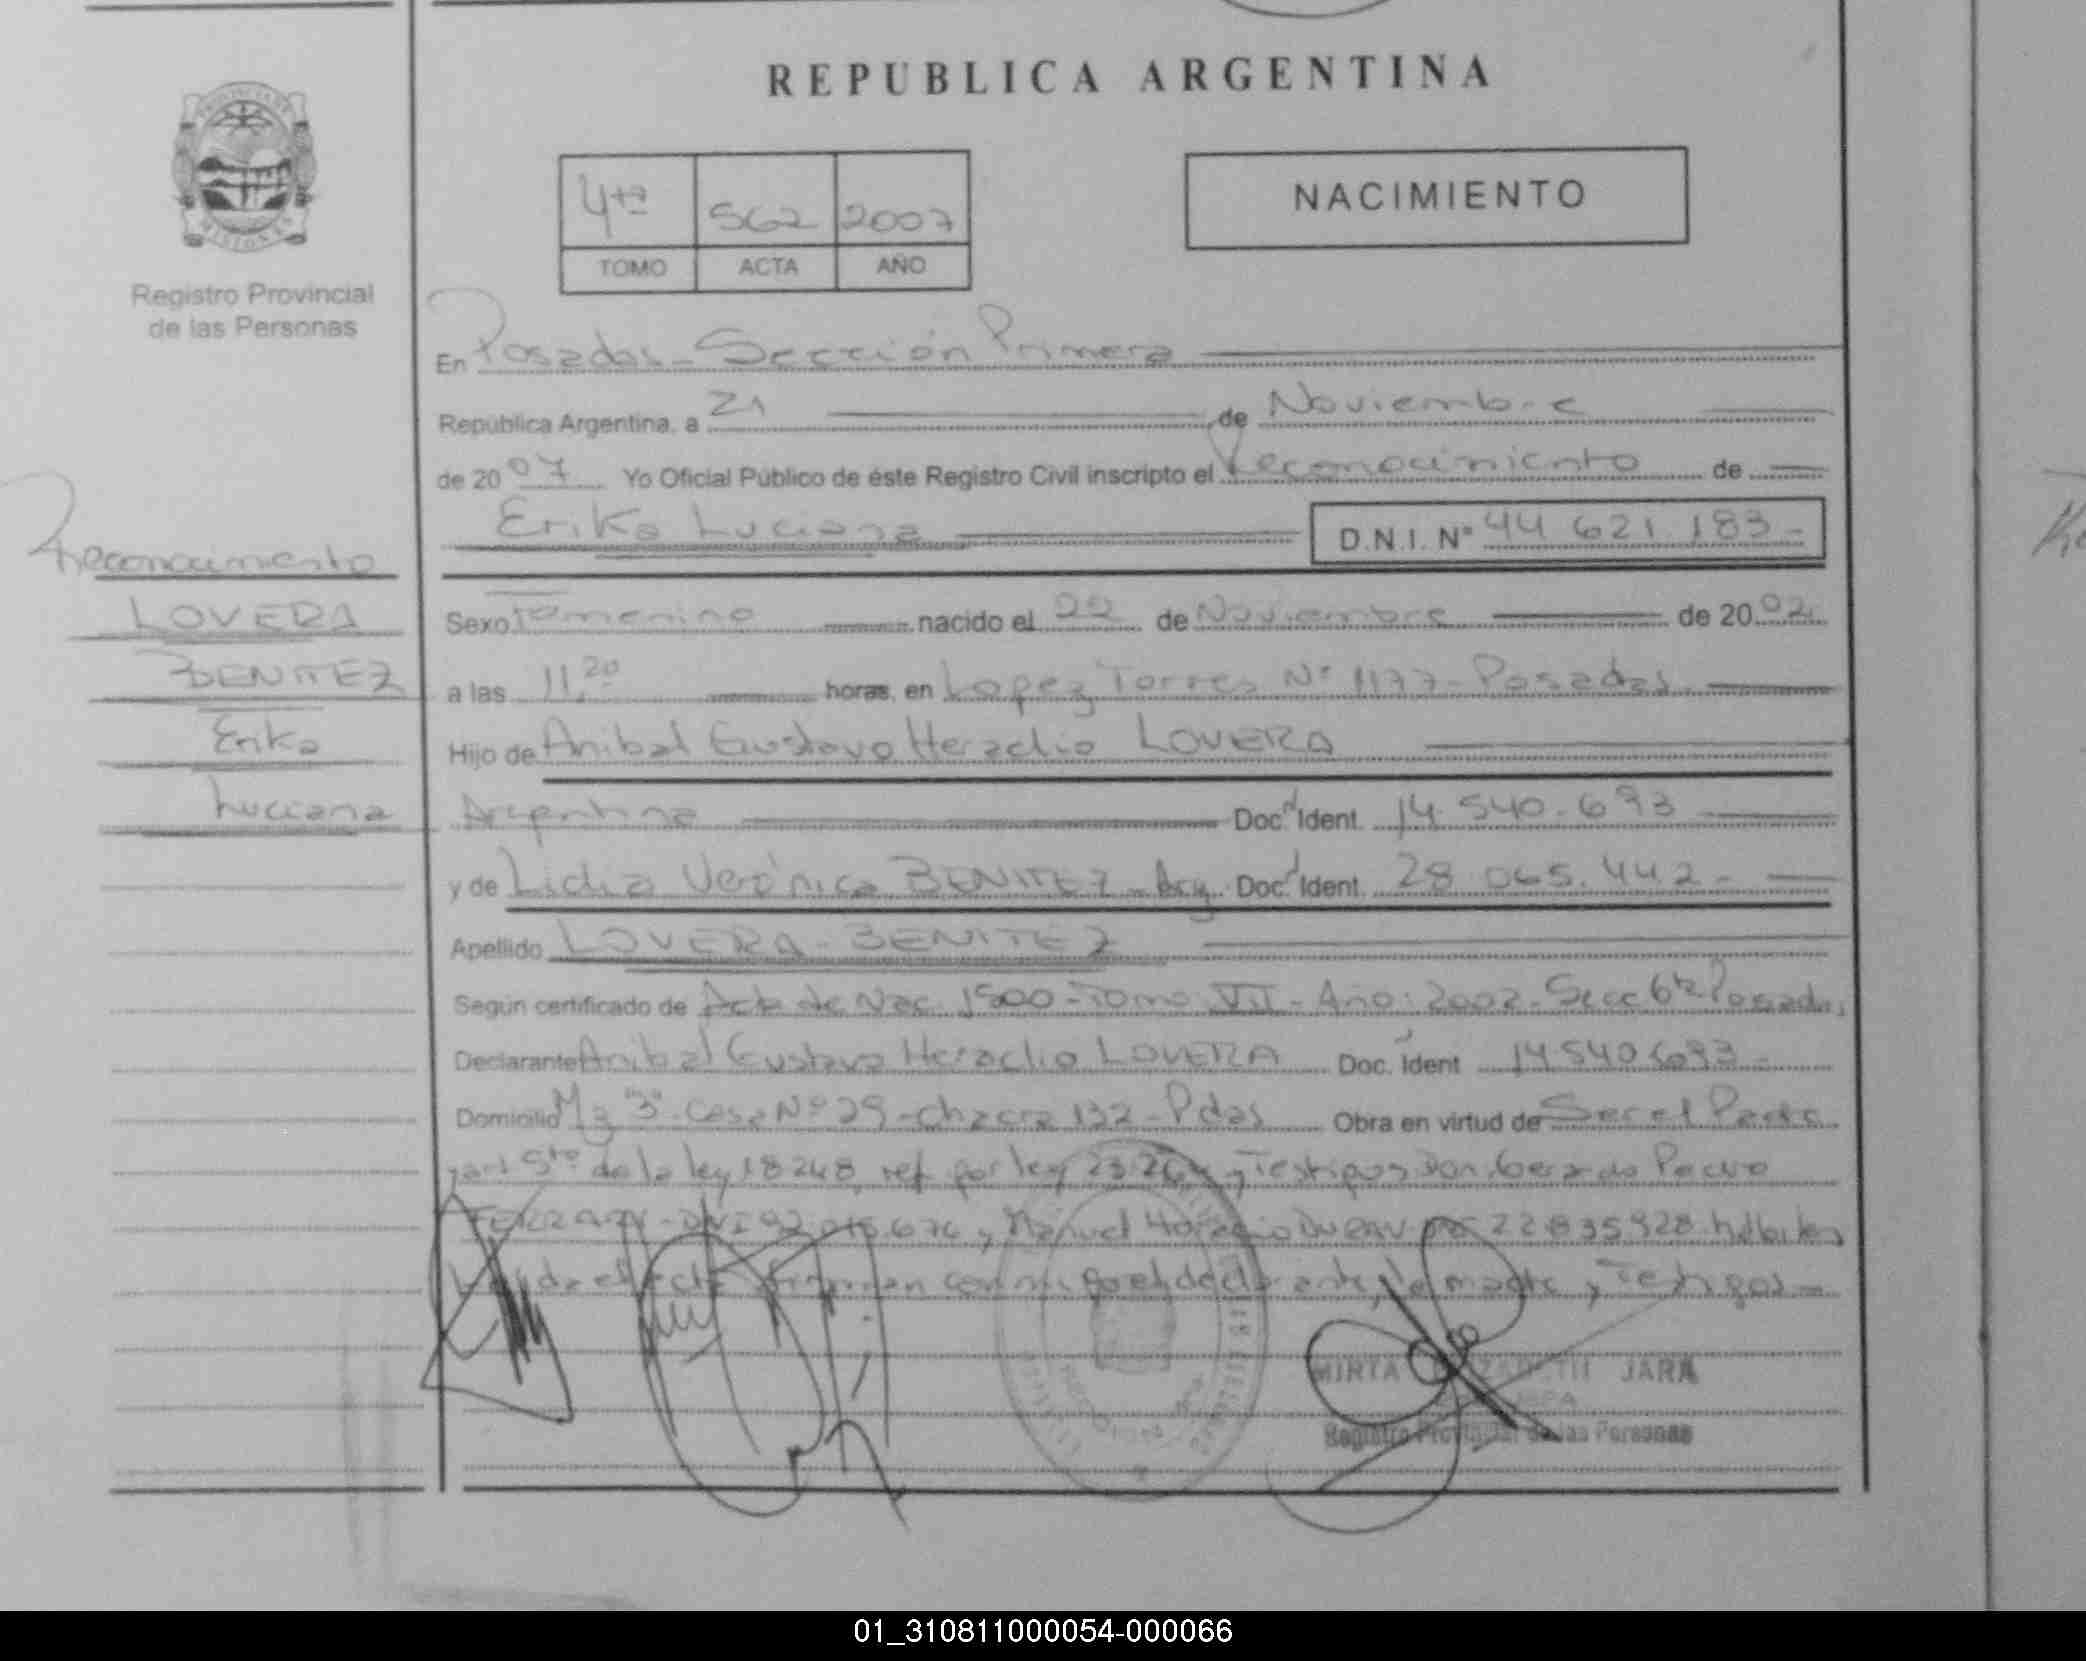 REPUBLICA ARGENTINA
PROVINCIA DE
MISIONES
Registro Provincial
de las Personas
4ta 562 2007
TOMO ACTA AÑO
NACIMIENTO
En Posadas - Sección Primera
República Argentina, a 21 de Noviembre
de 2007 Yo Oficial Público de éste Registro Civil inscripto el Reconocimiento de
Erika Luciana
D.N.I. Nº 44 621.183-
Reconocimiento
LOVERA
BENITEZ
Erika
Luciana
Sexo Femenino nacido el 22 de Noviembre de 2002
a las 11,20 horas, en Lopez Torres Nº 1177 - Posadas
Hijo de Anibal Gustavo Heraclio LOVERA
Argentina Doc. Ident. 14.540.693
y de Lidia Verónica BENITEZ - Arg. Doc. Ident. 28.065.442-
Apellido LOVERA - BENITEZ
Según certificado de Acta de Nac. 1500 - Tomo VII - Año: 2002 - Secc 6ta Posadas
Declarante Anibal Gustavo Heraclio LOVERA Doc. Ident 14.540.693-
Domicilio Mz "3" Casa Nº 29 - Chacra 132 - Pdas Obra en virtud de Ser el Padre
y art 5to de la ley 18248, ref. por ley 23.264 y Testigos Don Gerardo Pedro
DNI 92 676 y Manuel Horacio 22.835.928 hábiles
firman conmigo el declarante, la madre y Testigos -
MIRTA ELIZABETH JARA
JEFA
Registro Provincial de las Personas
01_310811000054-000066